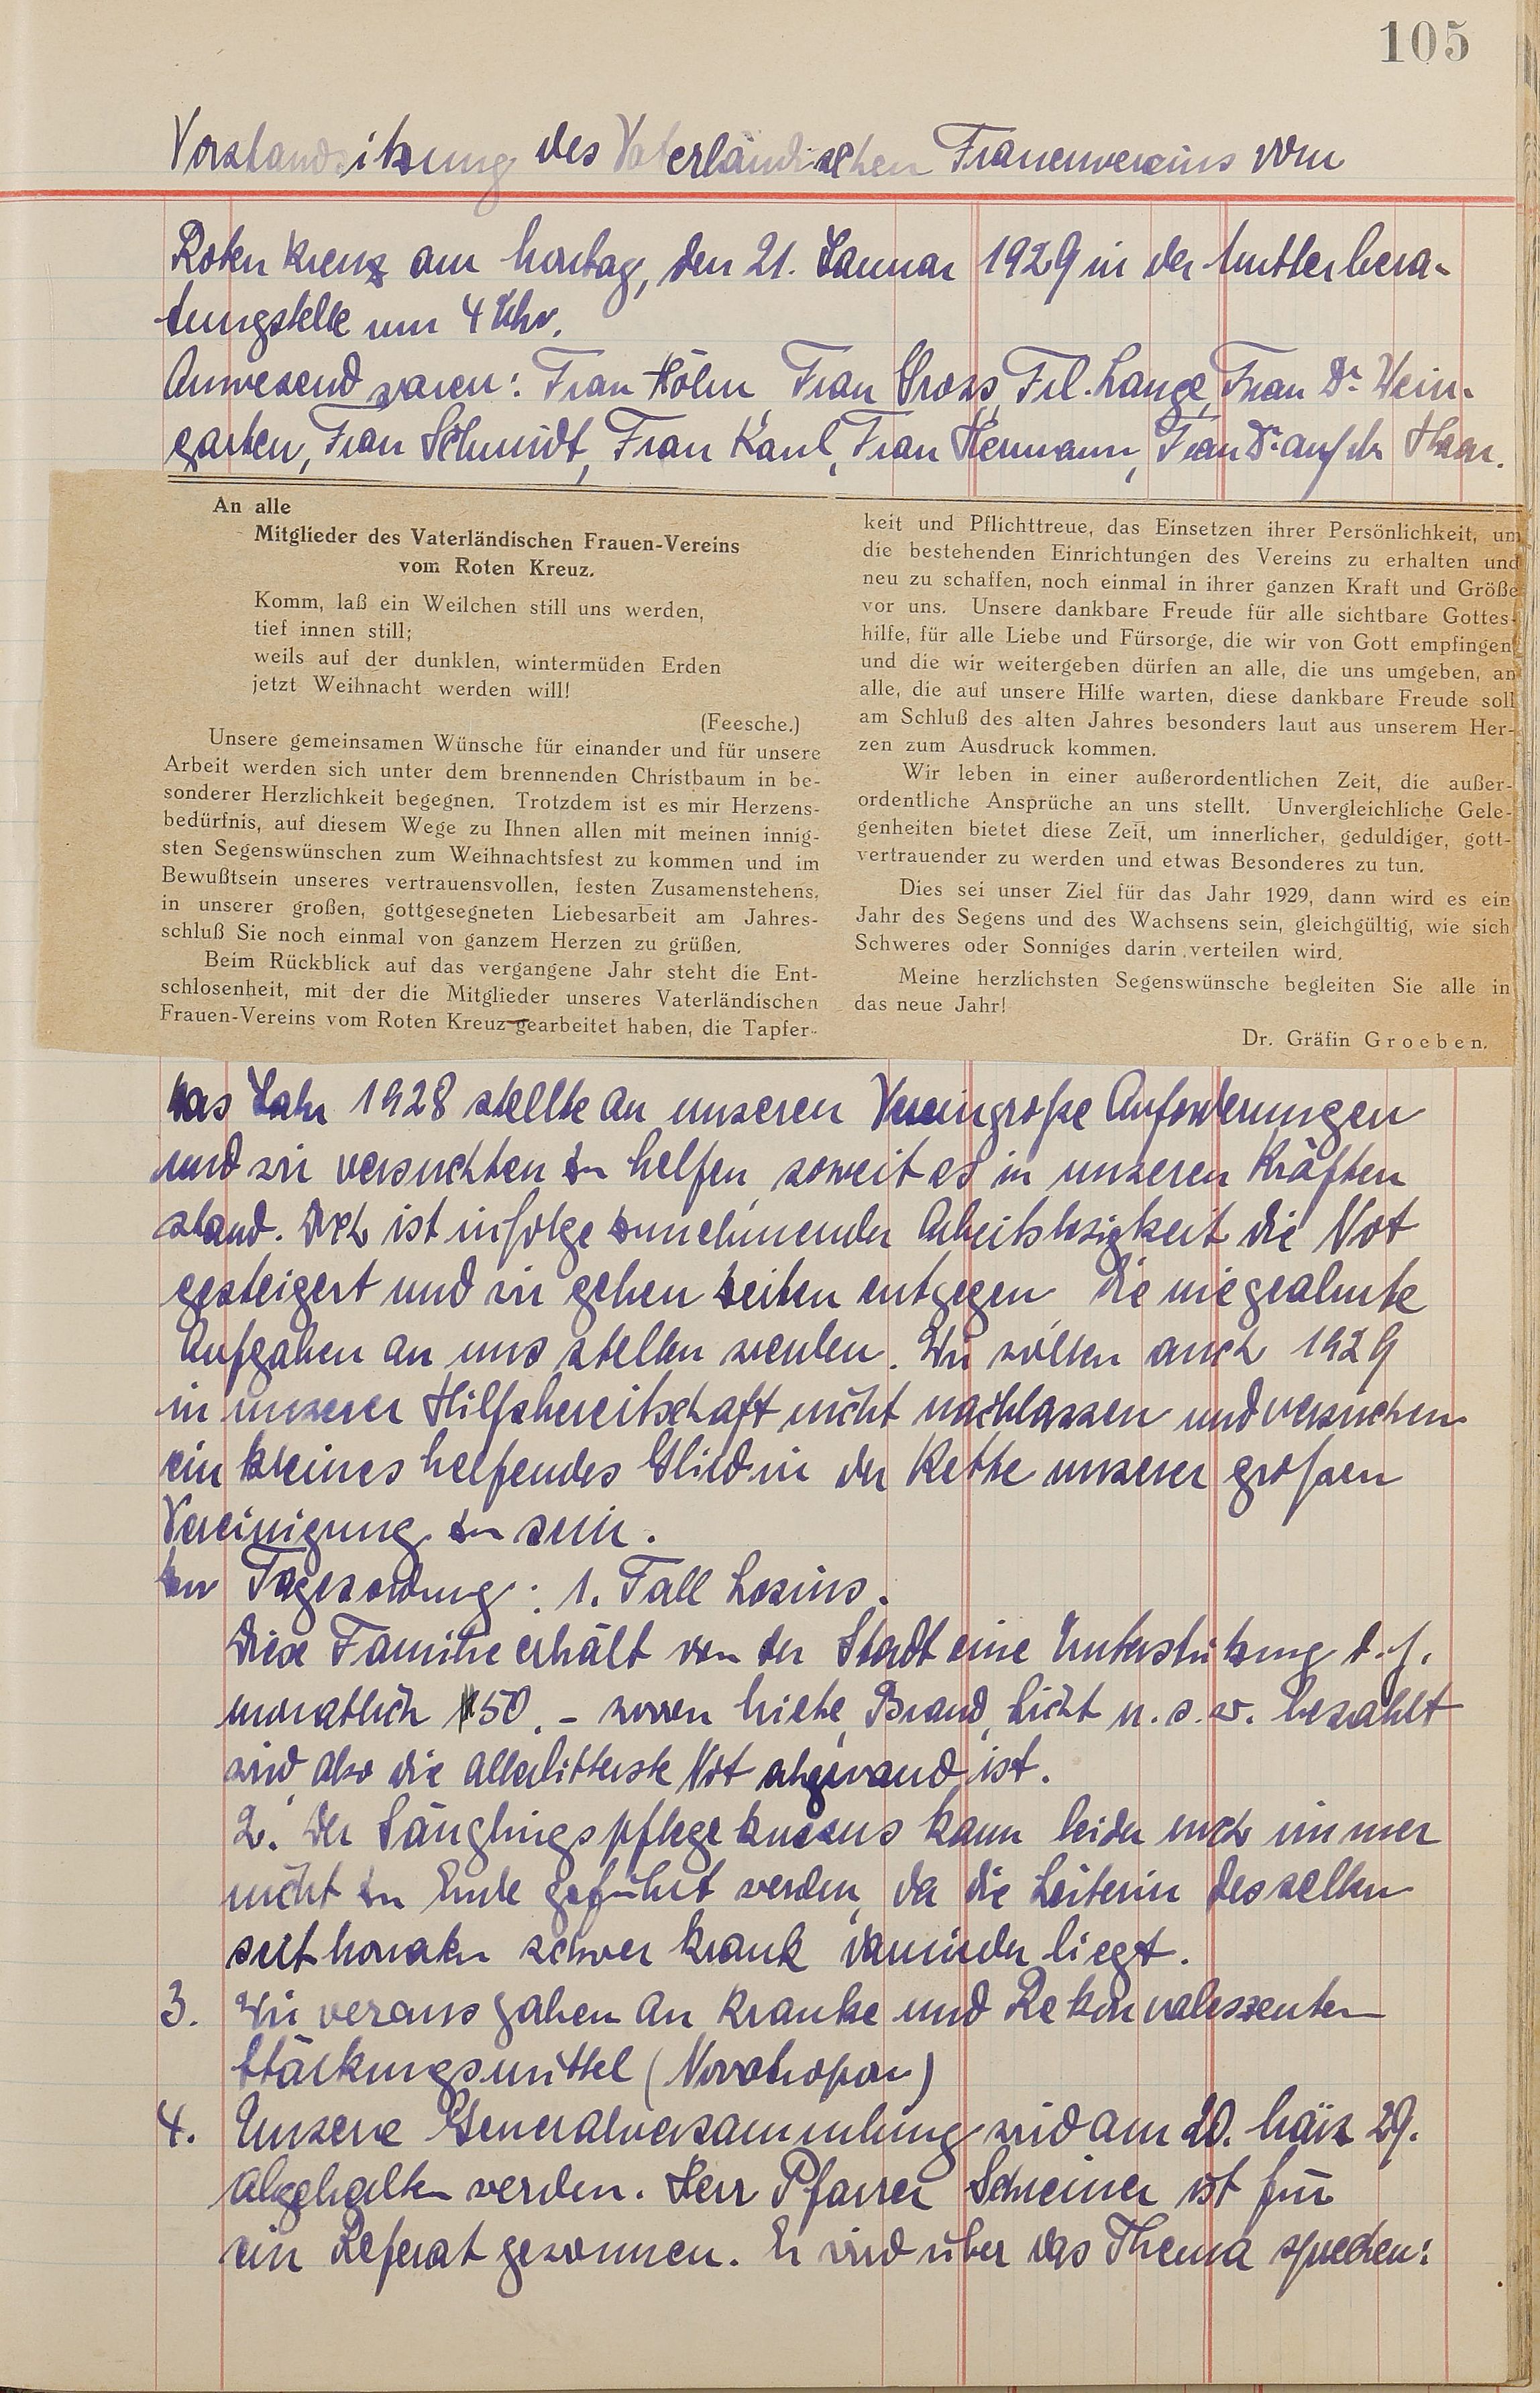 105
Vorstandsitzung des Vaterländischen Frauenvereins vom
Roten Kreuz am Montag, den 21. Januar 1929 in der Mutterbera-
tungstelle um 4 Uhr.
Anwesend waren: Frau Hölm, Frau Gross, Frl. Lange, Frau Dr. Wein-
garten, Frau Schmidt, Frau Kaul, Frau Hermann, Frau Dr. auf der Haar.
An alle
Mitglieder des Vaterländischen Frauen-Vereins
vom Roten Kreuz.
Komm, laß ein Weilchen still uns werden,
tief innen still;
weils auf der dunklen, wintermüden Erden
jetzt Weihnacht werden will!
(Feesche.)
Unsere gemeinsamen Wünsche für einander und für unsere
Arbeit werden sich unter dem brennenden Christbaum in be-
sonderer Herzlichkeit begegnen. Trotzdem ist es mir Herzens-
bedürfnis, auf diesem Wege zu Ihnen allen mit meinen innig-
sten Segenswünschen zum Weihnachtsfest zu kommen und im
Bewußtsein unseres vertrauensvollen, festen Zusamenstehens,
in unserer großen, gottgesegneten Liebesarbeit am Jahres-
schluß Sie noch einmal von ganzem Herzen zu grüßen.
Beim Rückblick auf das vergangene Jahr steht die Ent-
schlosenheit, mit der die Mitglieder unseres Vaterländischen
Frauen-Vereins vom Roten Kreuz gearbeitet haben, die Tapfer-
keit und Pflichttreue, das Einsetzen ihrer Persönlichkeit, um
die bestehenden Einrichtungen des Vereins zu erhalten und
neu zu schaffen, noch einmal in ihrer ganzen Kraft und Größe
vor uns. Unsere dankbare Freude für alle sichtbare Gottes-
hilfe, für alle Liebe und Fürsorge, die wir von Gott empfingen
und die wir weitergeben dürfen an alle, die uns umgeben, an
alle, die auf unsere Hilfe warten, diese dankbare Freude soll
am Schluß des alten Jahres besonders laut aus unserem Her-
zen zum Ausdruck kommen.
Wir leben in einer außerordentlichen Zeit, die außer-
ordentliche Ansprüche an uns stellt. Unvergleichliche Gele-
genheiten bietet diese Zeit, um innerlicher, geduldiger, gott-
vertrauender zu werden und etwas Besonderes zu tun.
Dies sei unser Ziel für das Jahr 1929, dann wird es ein
Jahr des Segens und des Wachsens sein, gleichgültig, wie sich
Schweres oder Sonniges darin verteilen wird.
Meine herzlichsten Segenswünsche begleiten Sie alle in
das neue Jahr!
Dr. Gräfin Groeben.
Das Jahr 1928 stellte an unseren Verein große Anforderungen
und wir versuchten zu helfen, soweit es in unseren Kräften
stand. Doch ist infolge zunehmender Arbeitslosigkeit die Not
gesteigert und wir gehen Zeiten entgegen die niegeahnte
Aufgaben an uns stellen werden. Wir wollen auch 1929
in unserer Hilfsbereitschaft nicht nachlassen und versuchen
ein kleines helfendes Glied in der Kette unserer großen
Vereinigung zu sein.
Zur Tagesordnung: 1. Fall Losius.
Diese Familie erhält von der Stadt eine Unterstützung d.f.
monatlich M 50.- wovon Miete, Brand, Licht u.s.w. bezahlt
wird, also die allerbitterste Not abgewand ist.
2. Der Säuglingspflegekursus kann leider noch immer
nicht zu Ende geführt werden, da die Leiterin desselben
seit Monaten schwer krank darnieder liegt.
3. Wir verausgaben an Kranke und Rekonvaleszenten
Stärkungsmittel (Novotropon)
4. Unsere Generalversammlung wird am 20. März 29.
abgehalten werden. Herr Pfarrer Schreiner ist für
ein Referat gewonnen. Er wird über das Thema sprechen: